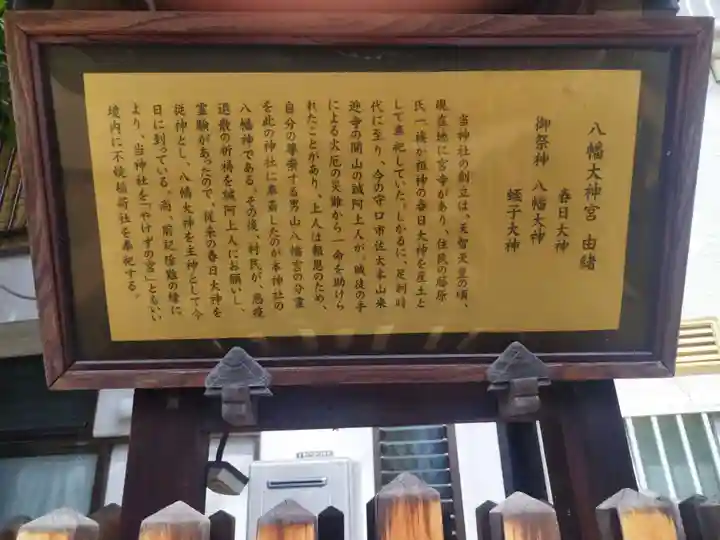 八幡大神宮 由緒
春日大神
御祭神 八幡大神
蛭子大神
当神社の創立は、天智天皇の頃、
現在地に宮寺があり、住民の藤原
氏一族が祖神の春日大神を産土と
して奉祀していた。しかるに、足利時
代に至り、今の守口市佐太来山来
迎寺の開山の誠阿上人が、賊徒の手
による火厄の災難から一命を助けら
れたことがあり、上人は報恩のため、
自分の尊崇する男山八幡宮の分霊
を此の神社に奉斎したのが本神社の
八幡神である。その後、村民が、悪疫
退散の祈祷を誠阿上人にお願いし、
霊験があったので、従来の春日大神を
従神とし、八幡大神を主神として今
日に到っている。尚、前記除難の縁に
より、当神社を「やけずの宮」ともいい
境内に不焼稲荷社を奉祀する。